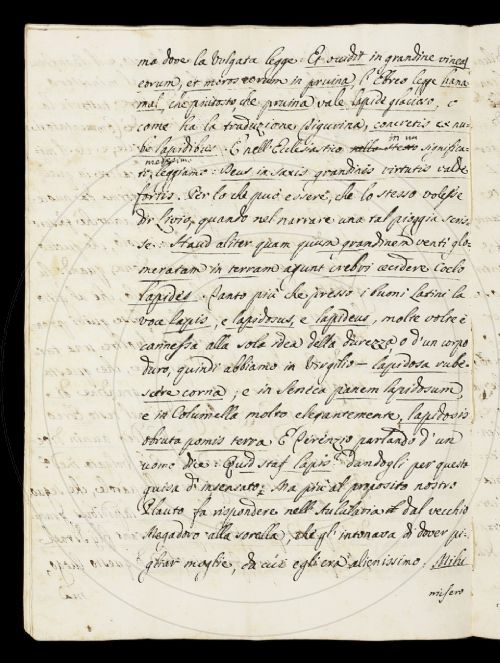 ma dove la Vulgata legge: Et occidit in grandine vineas
eorum, et moros eorum in pruina l'Ebreo legge hana
mal, che piutosto che pruina vale lapide giaciaro, o
come ha la traduzione Pigurina, concretis ex nu-
be lapidibus. E nell'Eclesiastico nello stesso in un significa-
medesimo
ti, leggiamo: Deus in saxis grandinis virtutis valde
fortis. Per lo che può essere, che lo stesso volesse
dir Livio, quando nel narrare una tal pioggia scris-
se: Haud aliter quam quum grandinem venti glo-
meratam in terram agunt crebri cecidere Coelo
lapides. Tanto più che presso i buoni latini la
voce lapis, e lapidosus, e lapideus, molte volte è
cannessa alla sola idea della durezza o d'un corpo
duro, quindi abbiamo in Virgilio — lapidosa rube-
scere corna; e in Seneca panem lapidosum,
e in Columella molto elegantemente, lapidosis
obruta pomis terra E Terenzio parlando d'un
uomo dice: Quid stas lapis? dandogli per questo
guisa d'insensato. Ma più al proposito nostro
Plauto fa rispondere nell'Aulularia dal vecchio
Megadoro alla sorella, che gli intonava di dover pi-
gliar moglie, da cui egli era alienissimo, Mihi
misero